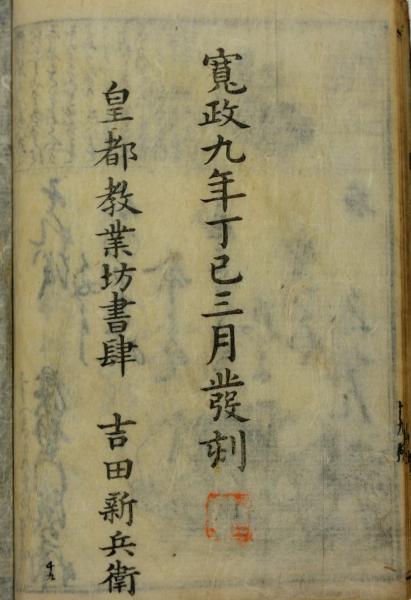 寛政九年丁巳三月発刻
皇都教業坊書肆 吉田新兵衛